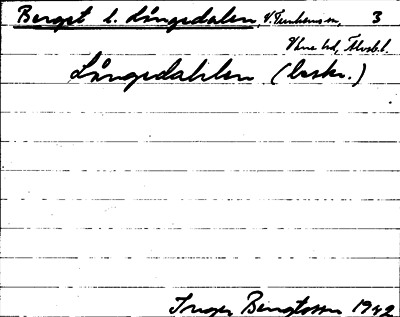 Berget l. Långedalen, V. Tunhems sn, 3
Väne hd, Älvsb.l.
Långedahlen (beskr.)
Inger Bengtsson 1942